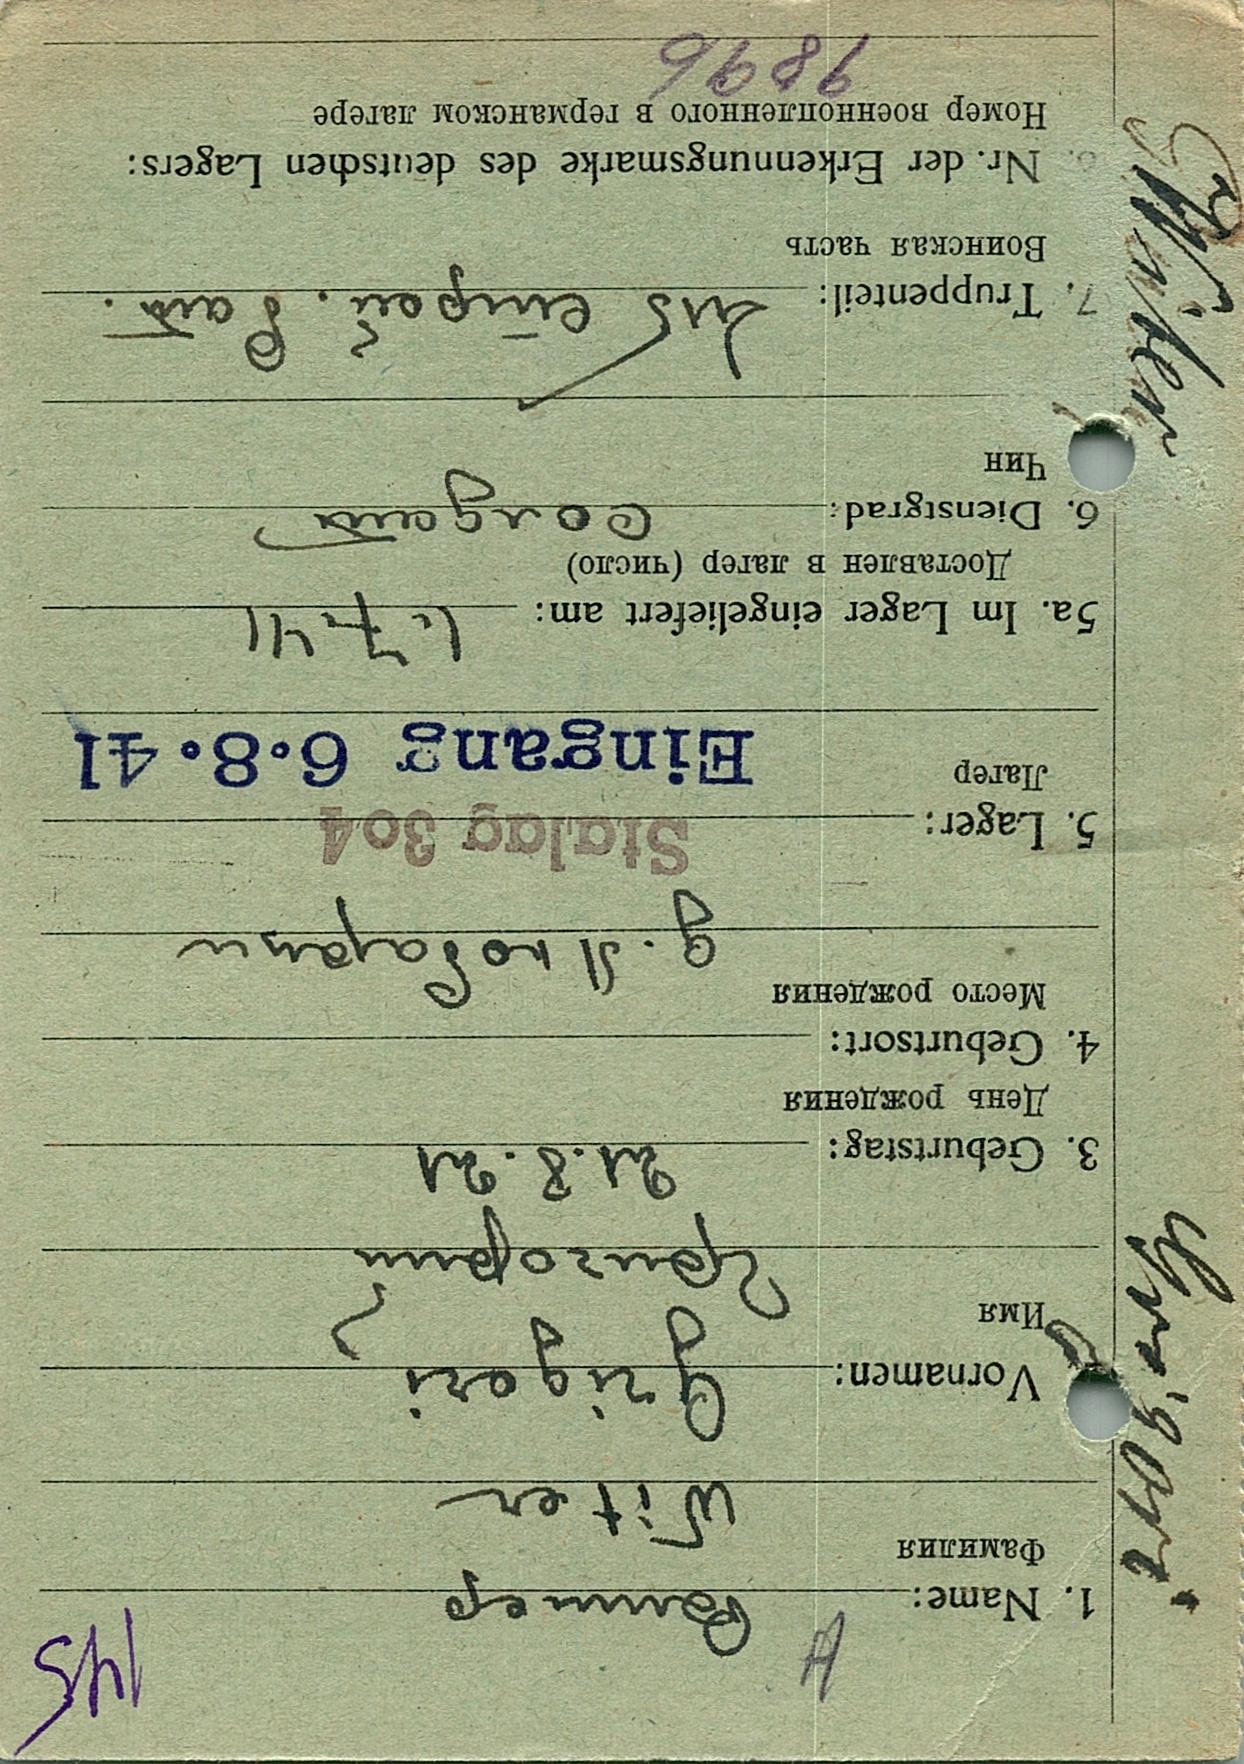 145
A
1. Name: Виттер
Фамилия
Witer
Vornamen: Grigori
Имя
Григорий
3. Geburtstag: 21.8.21
День рождения
4. Geburtsort:
Место рождения
д.
5. Lager: Stalag 304
Лагер
Eingang 6.8.41
5a. Im Lager eingeliefert am: 1.7.41
Доставлен в лагер (число)
6. Dienstgrad: солдат
Чин
7. Truppenteil: 215 строй. бат.
Воинская часть
8. Nr. der Erkennungsmarke des deutschen Lagers:
Номер военнопленного в германском лагере
9896
Witer
Grigori